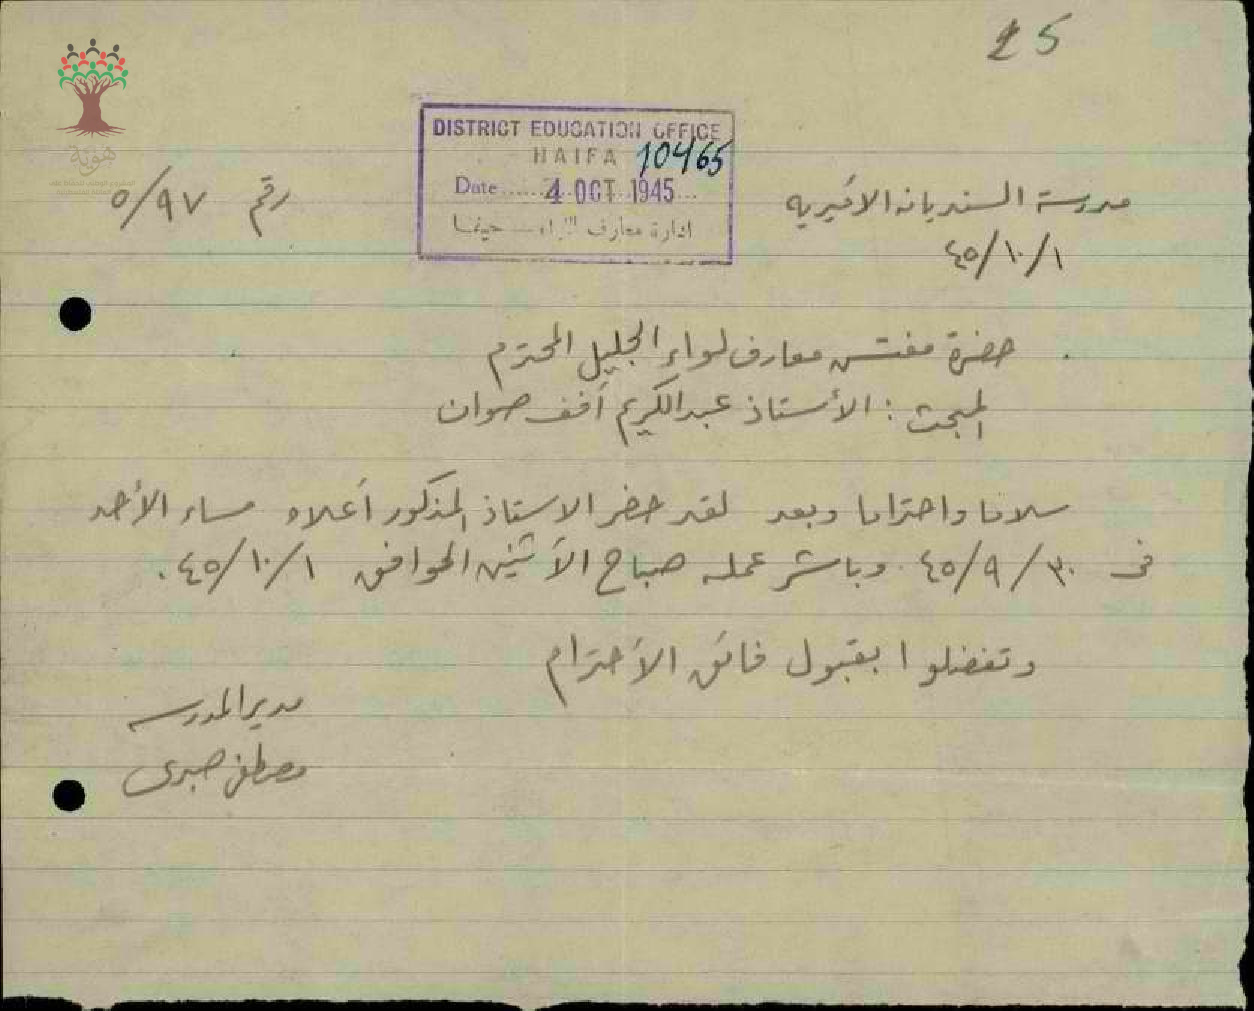 25
DISTRICT EDUCATION OFFICE
HAIFA 10465
Date ...... 4 OCT 1945 ...
ادارة معارف اللواء حيفا
رقم ٥/٩٧
مدرسة السنديانه الاميريه
٤٥/١٠/١
حضرة مفتش معارف لواء الجليل المحترم
المبحث : الأستاذ عبدالكريم أفند صوان
سلاما واحتراما وبعد لقد حضر الاستاذ المذكور أعلاه مساء الأحد
فى ٤٥/٩/٣٠ وباشر عمله صباح الأثنين الموافق ٤٥/١٠/١.
وتفضلوا بقبول فائق الأحترام
مدير المدرسه
مصطفى صبرى
هوية